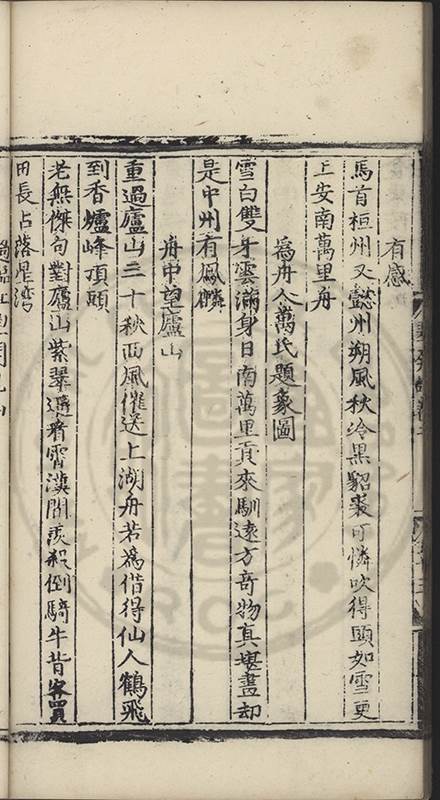 有感
馬首桓州又懿州朔風秋冷黑貂裘可憐吹得頭如雪更
上安南萬里舟
為舟人萬氏題象圖
雪白雙牙雲滿身日南萬里貢來馴遠方奇物真堪畫却
是中州有鳳麟
舟中望廬山
重過廬山三十秋西風催送上湖舟若為借得仙人鶴飛
到香爐峰頂頭
老無傑句對廬山紫翠遥看霄漢間羨殺倒騎牛背客買
田長占落星灣